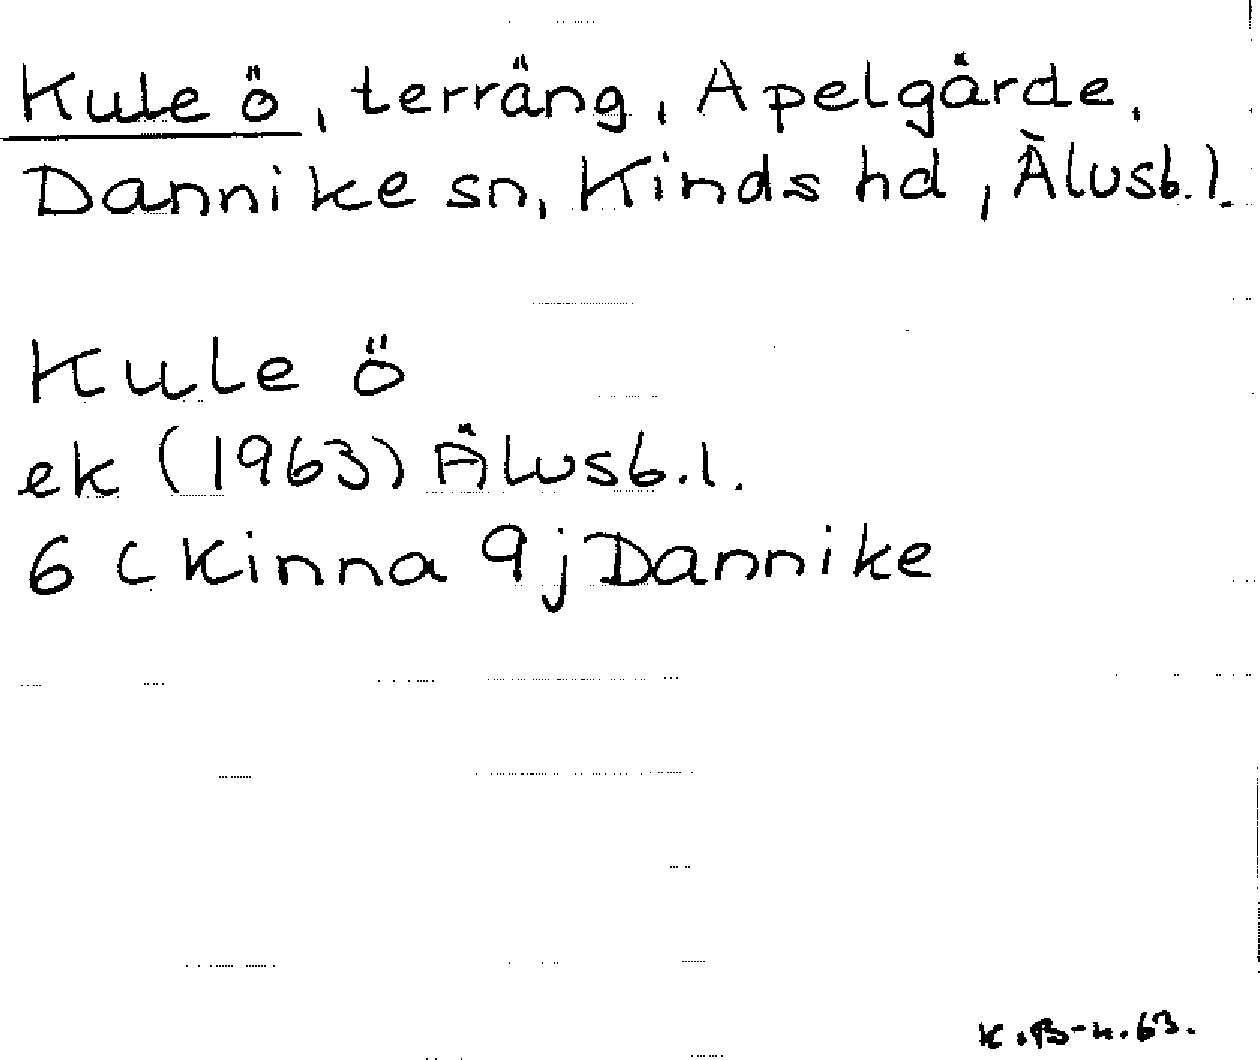 Kule ö, terräng, Apelgårde,
Dannike sn, Kinds hd, Älvsb.l.
Kule ö
ek (1963) Älvsb.l.
6 C Kinna 9j Dannike
K.B-n.63.